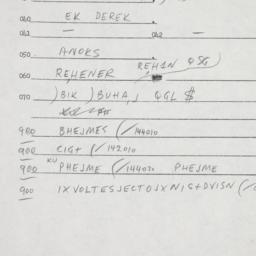 040 EK DEREK .
041 — 042 —
050 ANOKS
060 REHENER REHIN QSG
070 )BIK )BUHA, QGL $
900 BHEJMES (/144010
900 CIGT (/142010
900 KU PHEJME (/144020 PHEJME
900 IXVOLTESJECTOJXNIGTDVISN (/